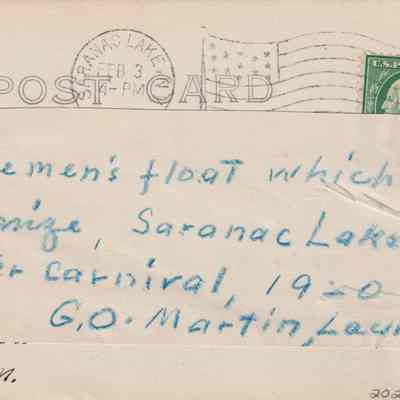 SARANAC LAKE N
FEB 3
4-PM
POST CARD
emen's float which
ize, Saranac Lake
er carnival, 1920
G.O. Martin,
n.
202